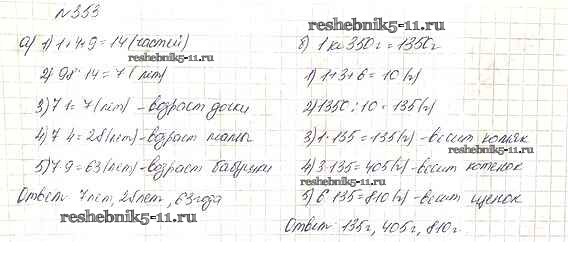 N353
а) 1) 1+4+9=14 (частей)
2) 98:14=7 (лет)
3) 7·1=7 (лет) - возраст дочки
4) 7·4=28 (лет) - возраст мамы
5) 7·9=63 (лет) - возраст бабушки
Ответ: 7 лет, 28 лет, 63 года
б) 1 кг 350г = 1350г
1) 1+3+6=10 (ч)
2) 1350:10=135 (г)
3) 1·135=135 (г) - весит
4) 3·135=405 (г) - весит котенок
5) 6·135=810 (г) - весит щенок
Ответ: 135г, 405г, 810г
reshebnik5-11.ru
reshebnik5-11.ru
reshebnik5-11.ru
reshebnik5-11.ru
reshebnik5-11.ru